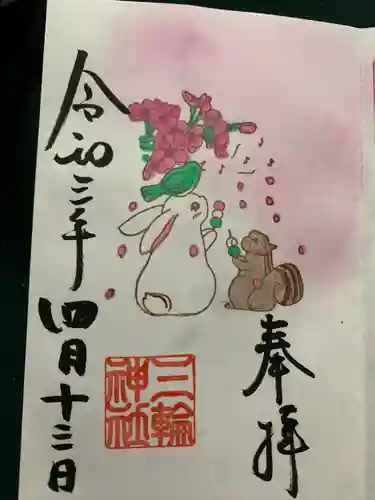 奉拝
三輪
神社
令和三年
四月十三日